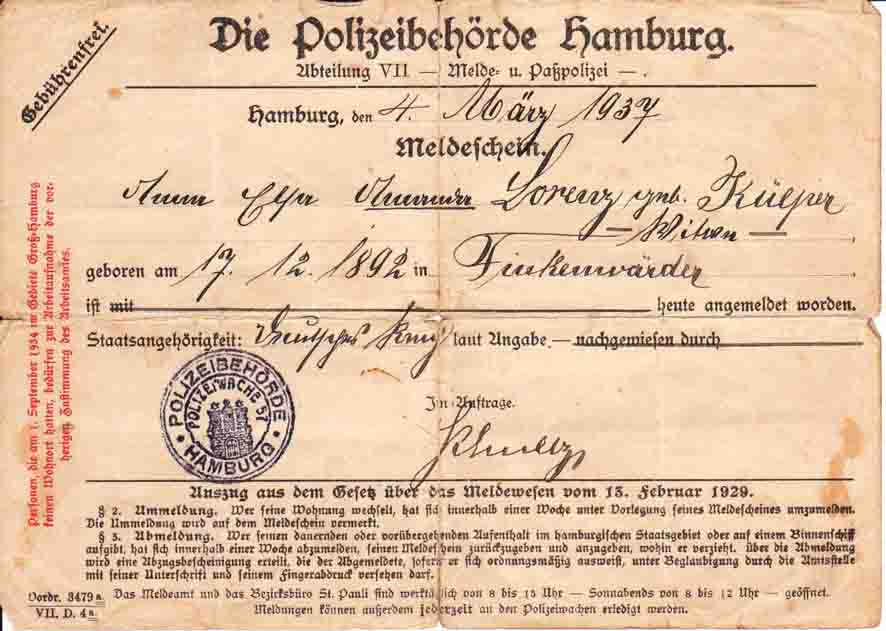 Gebührenfrei.
Die Polizeibehörde Hamburg.
Abteilung VII — Melde- u. Paßpolizei —.
Hamburg, den 4. März 1937
Meldeschein.
Anna Elsa Amanda Lorenz geb. Külper
— Witwe —
geboren am 17. 12. 1892 in Finkenwärder
ist mit heute angemeldet worden.
Staatsangehörigkeit: Deutsches laut Angabe. — nachgewiesen durch
Im Auftrage.
POLIZEIBEHÖRDE
POLIZEIWACHE 57
HAMBURG
Personen, die am 1. September 1934 im Gebiete Groß-Hamburg
keinen Wohnort hatten, bedürfen zur Arbeitaufnahme der vor-
herigen Zustimmung des Arbeitsamtes.
Auszug aus dem Gesetz über das Meldewesen vom 15. Februar 1929.
§ 2. Ummeldung. Wer seine Wohnung wechselt, hat sich innerhalb einer Woche unter Vorlegung seines Meldescheines umzumelden.
Die Ummeldung wird auf dem Meldeschein vermerkt.
§ 3. Abmeldung. Wer seinen dauernden oder vorübergehenden Aufenthalt im hamburgischen Staatsgebiet oder auf einem Binnenschiff
aufgibt, hat sich innerhalb einer Woche abzumelden, seinen Meldeschein zurückzugeben und anzugeben, wohin er verzieht. Über die Abmeldung
wird eine Abzugsbescheinigung erteilt, die der Abgemeldete, sofern er sich ordnungsmäßig ausweist, unter Beglaubigung durch die Amtsstelle
mit seiner Unterschrift und seinem Fingerabdruck versehen darf.
Vordr. 3479 a.
VII. D. 4 a.
Das Meldeamt und das Bezirksbüro St. Pauli sind werktäglich von 8 bis 15 Uhr — Sonnabends von 8 bis 12 Uhr — geöffnet.
Meldungen können außerdem jederzeit an den Polizeiwachen erledigt werden.